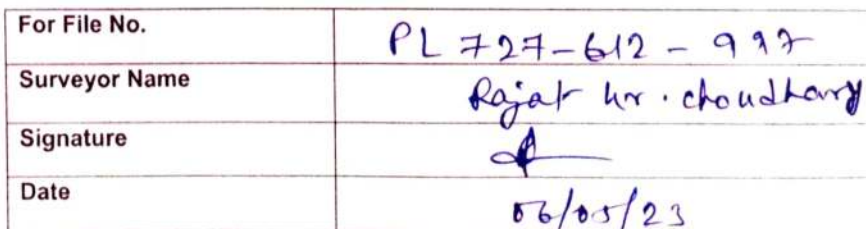 For File No. PL 727-612-997
Surveyor Name Rajat kr. choudhary
Signature
Date 06/05/23